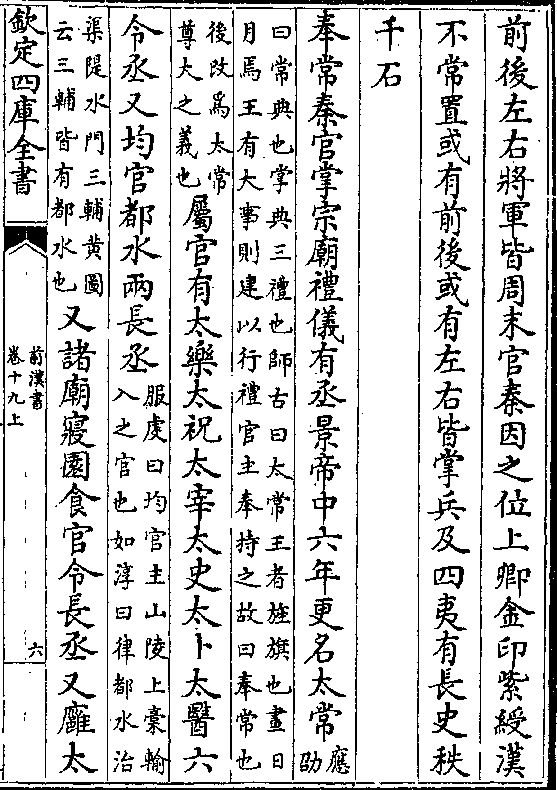 前後左右將軍皆周末官秦因之位上卿金印紫綬漢
不常置或有前後或有左右皆掌兵及四夷有長史秩
千石
奉常秦官掌宗廟禮儀有丞景帝中六年更名太常應
劭
曰常典也掌典三禮也師古曰太常王者旌旗也畫日
月焉王有大事則建以行禮官主奉持之故曰奉常也
後改爲太常
尊大之義也
屬官有太樂太祝太宰太史太卜太醫六
令丞又均官都水兩長丞
服虔曰均官主山陵上槀輸
入之官也如淳曰律都水治
渠隄水門三輔黄圖
云三輔皆有都水也
又諸廟寢園食官令長丞又廱太
欽定四庫全書
前漢書
卷十九上
六